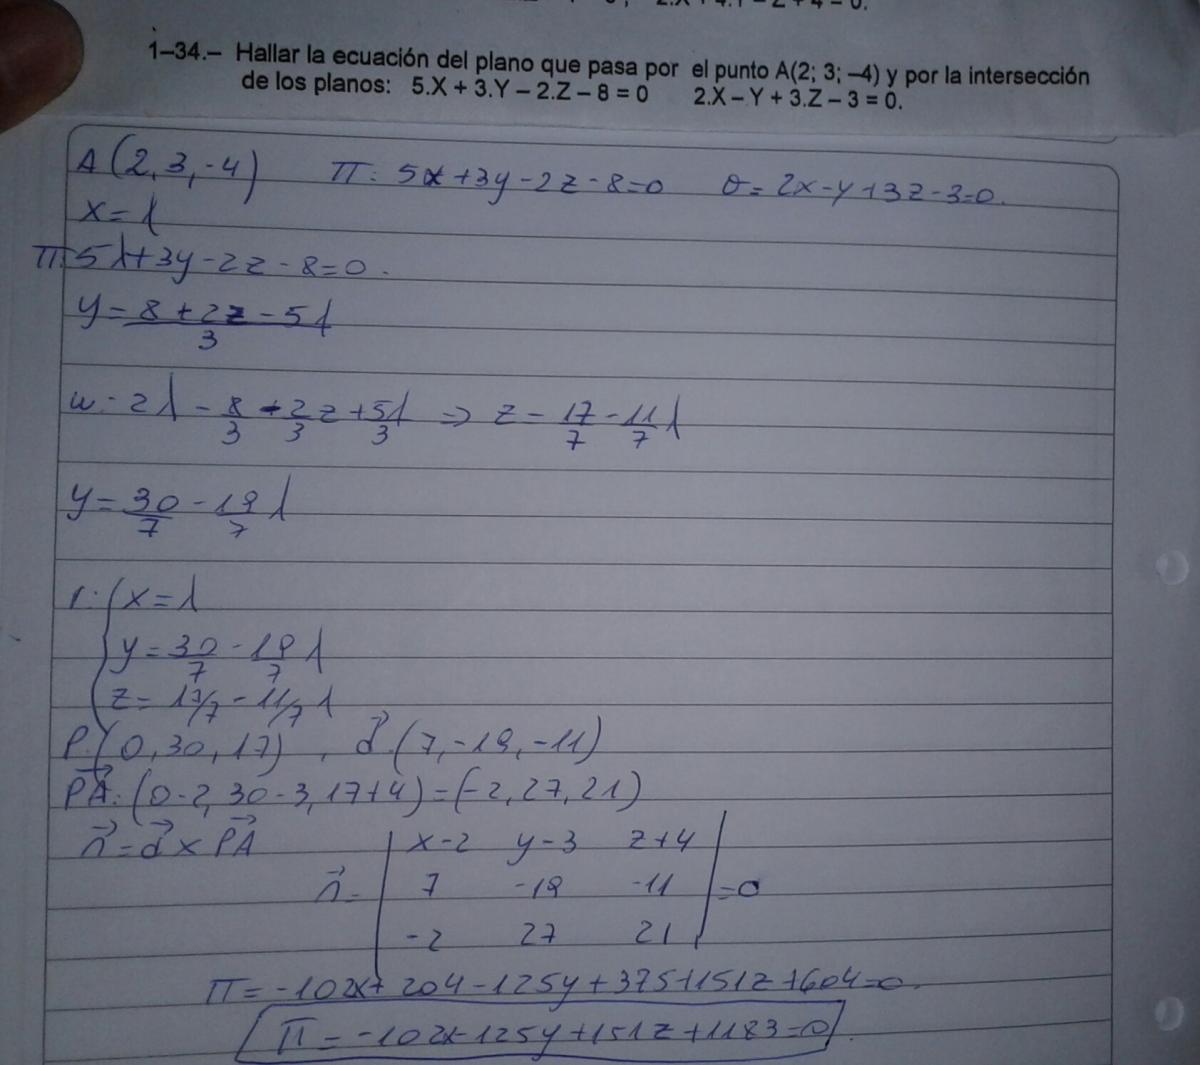 2.X + 4.Y – Z + 4 = 0.
1–34.– Hallar la ecuación del plano que pasa por el punto A(2; 3; –4) y por la intersección
de los planos: 5.X + 3.Y – 2.Z – 8 = 0 2.X – Y + 3.Z – 3 = 0.
A(2,3,-4) π: 5x+3y-2z-8=0 σ= 2x-y+3z-3=0.
x=λ
π: 5λ+3y-2z-8=0.
y= (8+2z-5λ)/3
w: 2λ - 8/3 - 2/3 z + 5λ/3 => z = 17/7 - 11/7 λ
y= 30/7 - 19/7 λ
r: { x=λ
y= 30/7 - 19/7 λ
z= 17/7 - 11/7 λ
P:(0,30,17), d⃗:(7,-19,-11)
PA⃗: (0-2, 30-3, 17+4) = (-2,27,21)
n⃗=d⃗ x PA⃗
n⃗= | x-2 y-3 z+4 |
| 7 -19 -11 | =0
| -2 27 21 |
π= -102x+204-125y+375+151z+604=0.
π=-102x-125y+151z+1183=0.